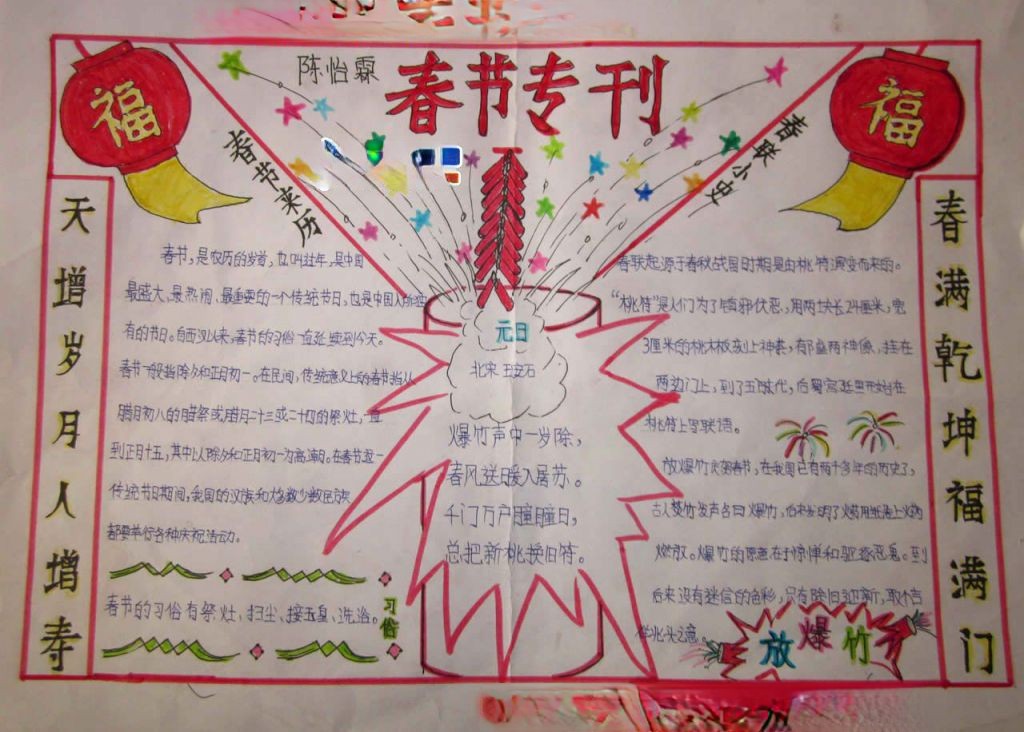 陈怡霖
春节专刊
福
福
春节来历
春联小史
天增岁月人增寿
春满乾坤福满门
春节,是农历的岁首,也叫过年,是中国
最盛大、最热闹、最重要的一个传统节日,也是中国人所独
有的节日。自西汉以来,春节的习俗一直延续到今天。
春节一般指除夕和正月初一。在民间,传统意义上的春节指从
腊月初八的腊祭或腊月二十三或二十四的祭灶,一直
到正月十五,其中以除夕和正月初一为高潮。在春节这一
传统节日期间,我国的汉族和大多数少数民族
都要举行各种庆祝活动。
春节的习俗有祭灶、扫尘、接玉皇、洗浴。
习俗
元日
北宋 王安石
爆竹声中一岁除,
春风送暖入屠苏。
千门万户曈曈日,
总把新桃换旧符。
春联起源于春秋战国时期是由桃符演变而来的。
“桃符”是人们为了镇邪伏恶,用两块长24厘米,宽
3厘米的桃木板刻上神荼,郁垒两神像,挂在
两边门上,到了五代时代,后蜀宫廷里开始在
桃符上写联语。
放爆竹庆贺春节,在我国已有两千多年的历史了,
古人焚竹发声名曰爆竹,后来发明了火药用纸卷上火药
燃放。爆竹的原意在于惊惮和驱逐恶鬼。到
后来没有迷信的色彩,只有除旧迎新,取吉
祥兆头之意。
放爆竹